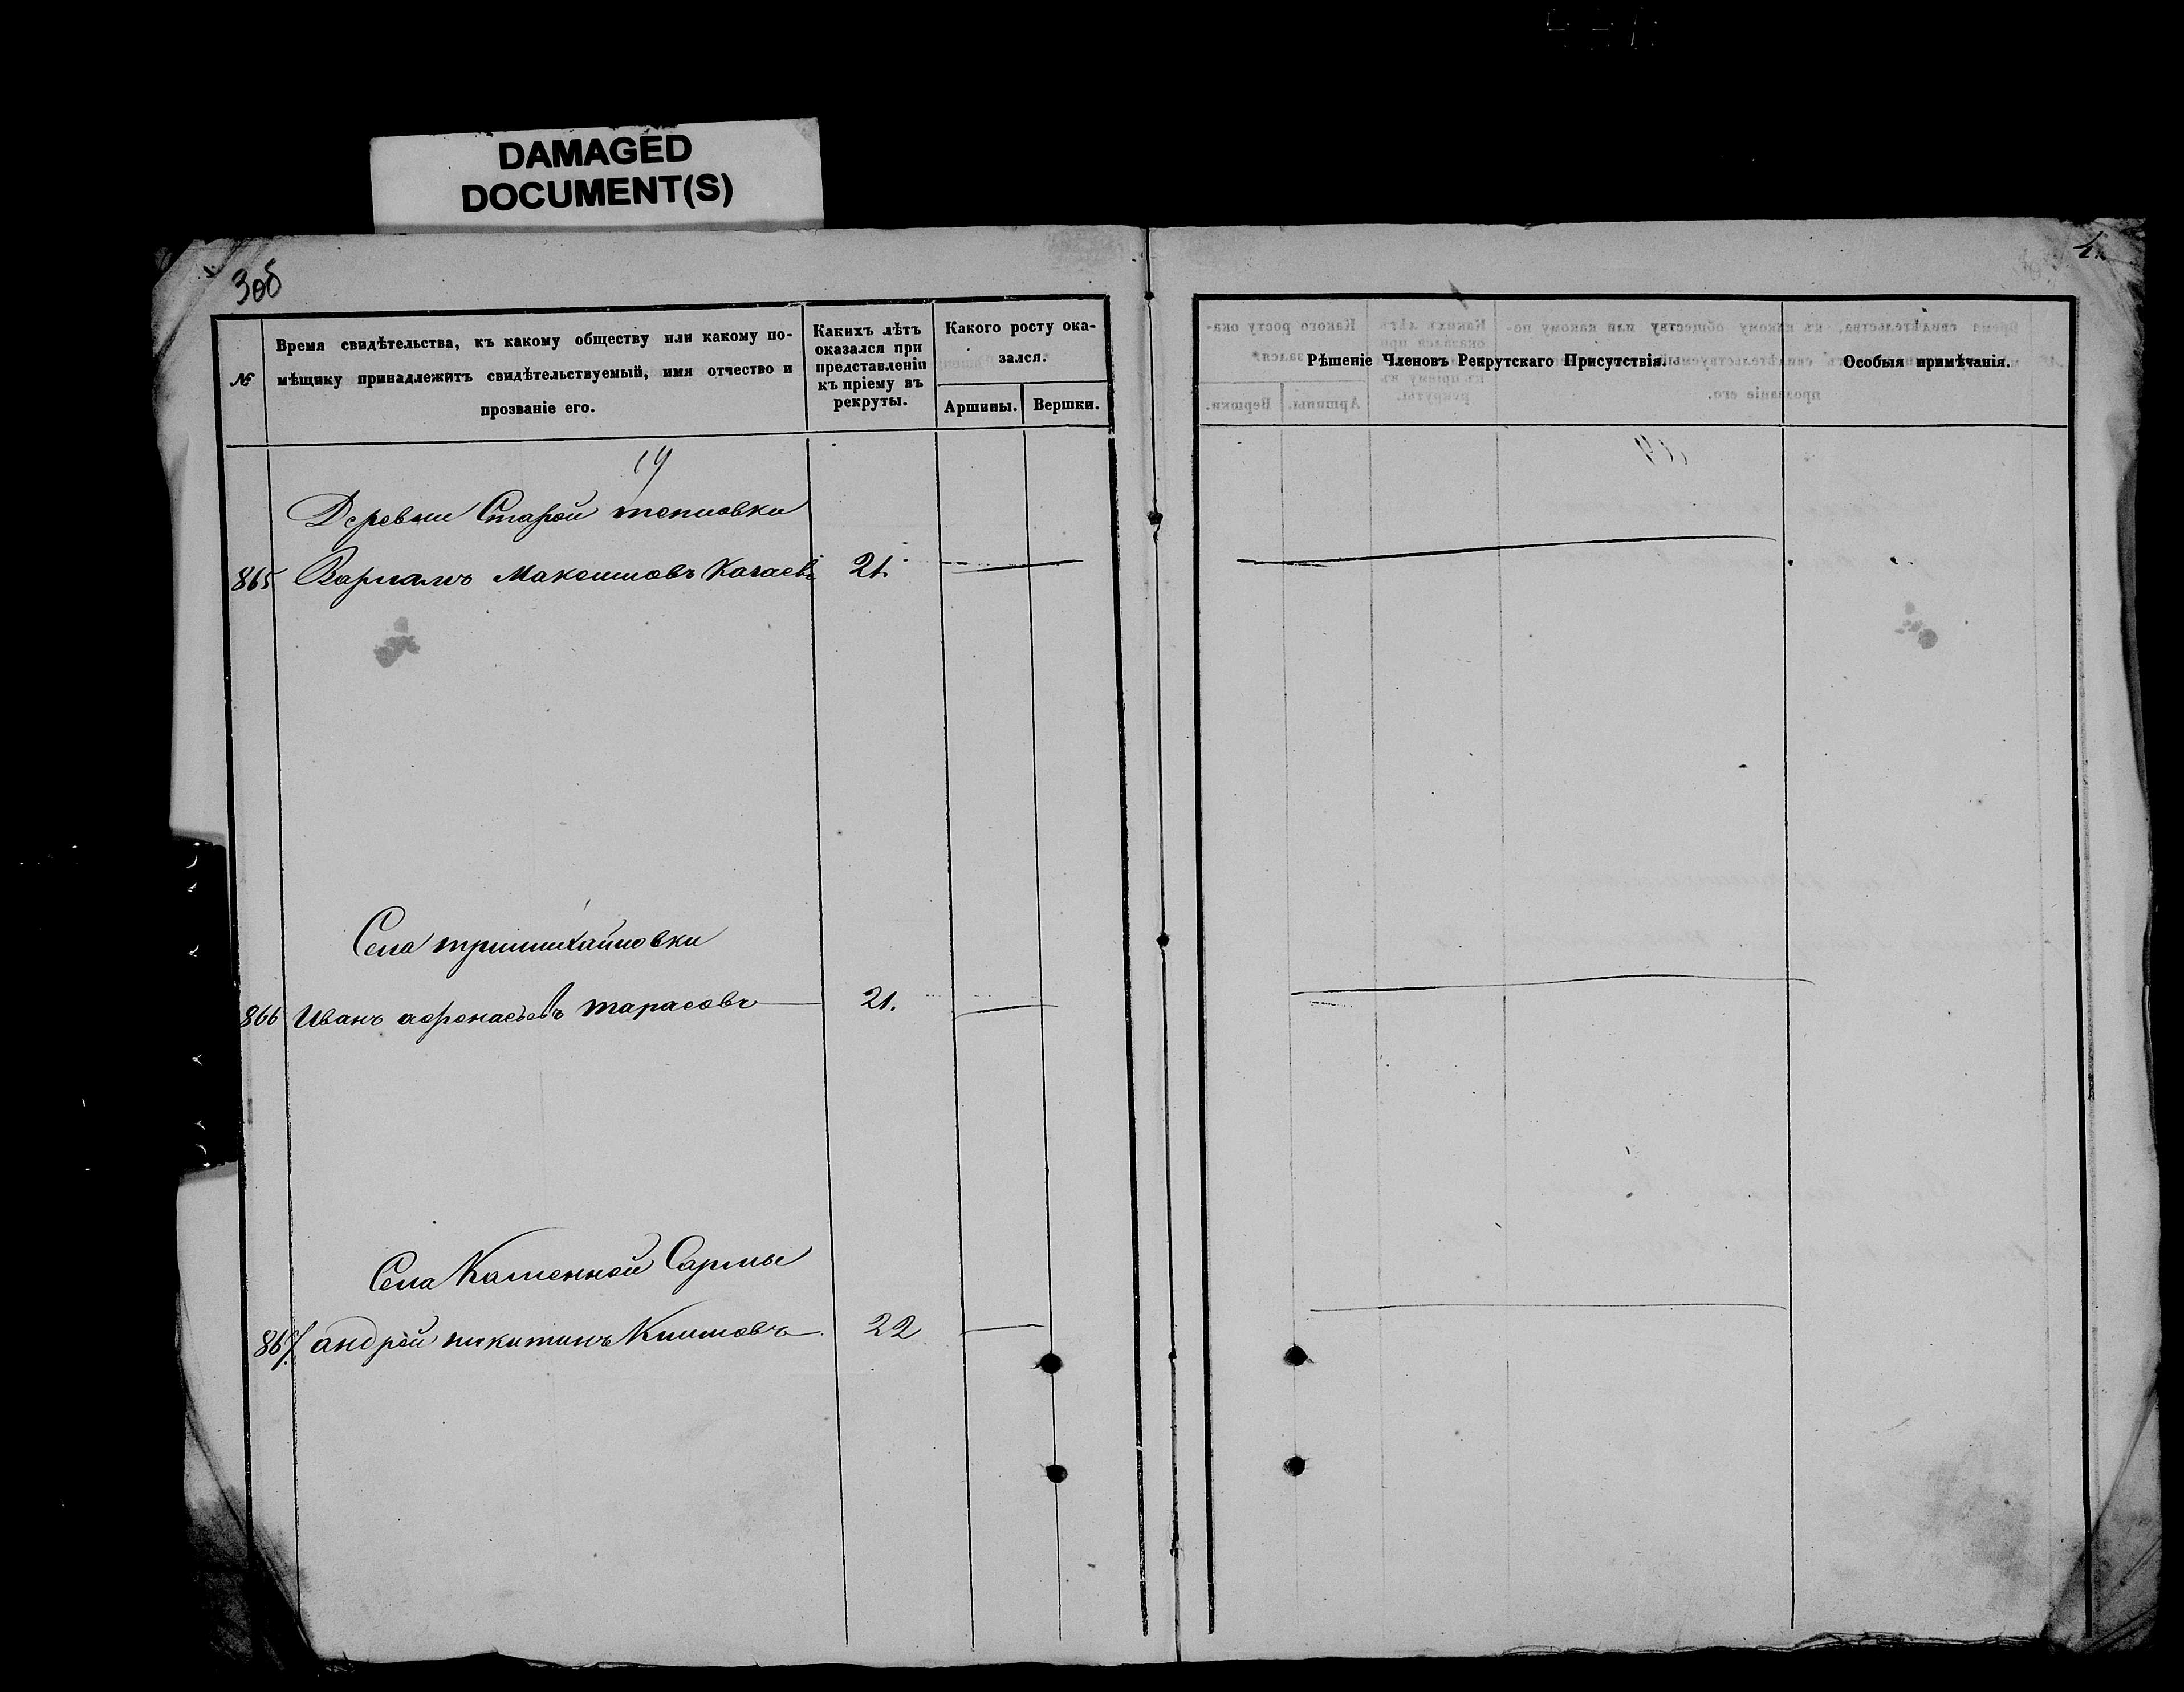 DAMAGED
DOCUMENT(S)
3об
4.
№
Время свидѣтельства, къ какому обществу или какому по-
мѣщику принадлежитъ свидѣтельствуемый, имя отчество и
прозваніе его.
Какихъ лѣтъ
оказался при
представленіи
къ пріему въ
рекруты.
Какого росту ока-
зался.
Аршины. Вершки.
Рѣшеніе Членовъ Рекрутскаго Присутствія.
Особыя примѣчанія.
19
Деревни Старой тепловки
865 Варламъ Максимовъ Качаевъ 21.
Села тримихайловки
866 Иванъ афонасьевъ тарасовъ 21.
Села Каменной Сармы
867. андрей никитинъ Климовъ 22